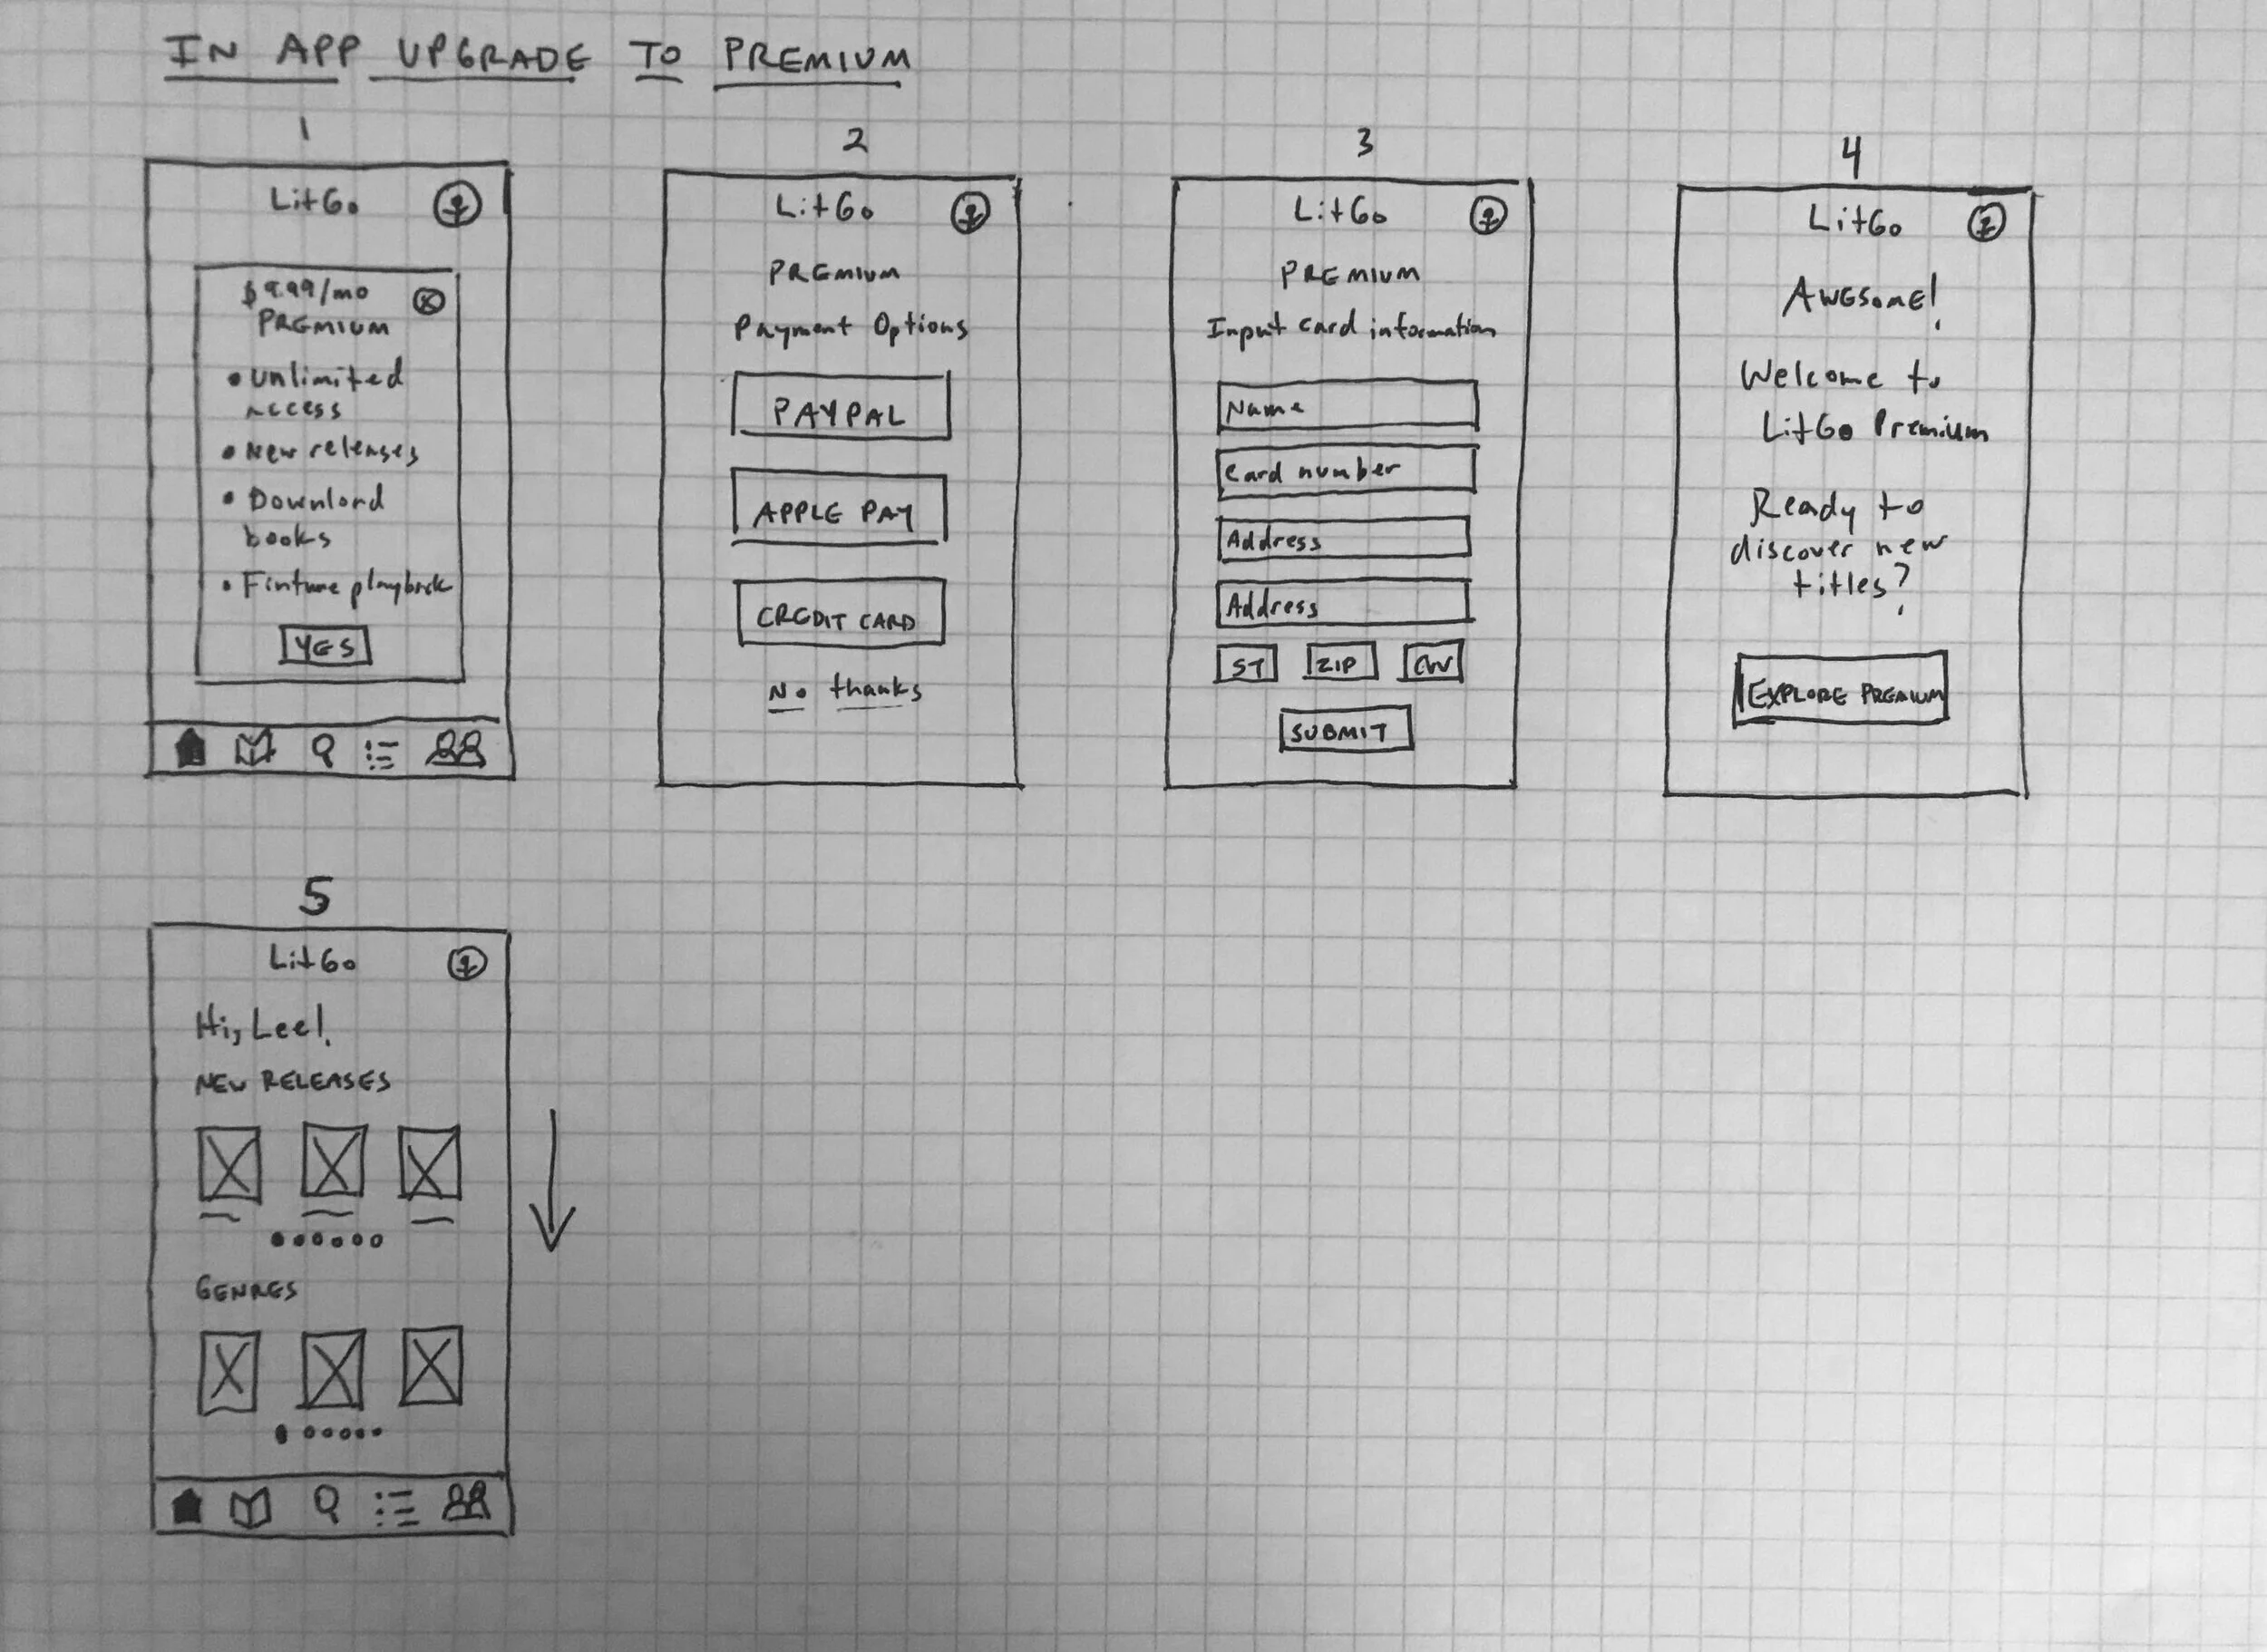 IN APP UPGRADE TO PREMIUM
1
LitGo
$9.99/mo
PREMIUM
• Unlimited
access
• New releases
• Download
books
• Fintune playback
YES
2
LitGo
PREMIUM
Payment Options
PAYPAL
APPLE PAY
CREDIT CARD
No thanks
3
LitGo
PREMIUM
Input card information
Name
Card number
Address
Address
ST ZIP CVV
SUBMIT
4
LitGo
AWESOME!
Welcome to
LitGo Premium
Ready to
discover new
titles?
EXPLORE PREMIUM
5
LitGo
Hi, Lee!
NEW RELEASES
GENRES